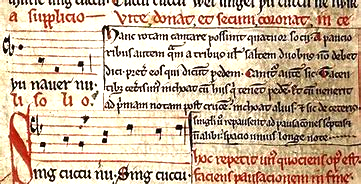 sing cuccu Cuccu cuccu wel singes þu cuccu ne
a supplicio Vite donat et secum coronat in ce
þu nauer nu.
li so li o.
Hanc rotam cantare possunt quatuor socii. A paucio
ribus autem q̃m a tribus ul' saltem duobus nõ debet
dici. preter eos qui dicunt pedem. Canitur autem sic. Tacen
tibus ceteris unus inchoat cum hiis qui tenent pedem. Et cum uenerit
ad primam notam post crucem. inchoat alius. et sic de ceteris.
singuli uero repausent ad pausaciones scriptas
et nõ alibi. spacio unius longe note.
Sing cuccu nu. Sing cuccu.
hoc repetit unus quociens opus est.
faciens pausacionem in fine.